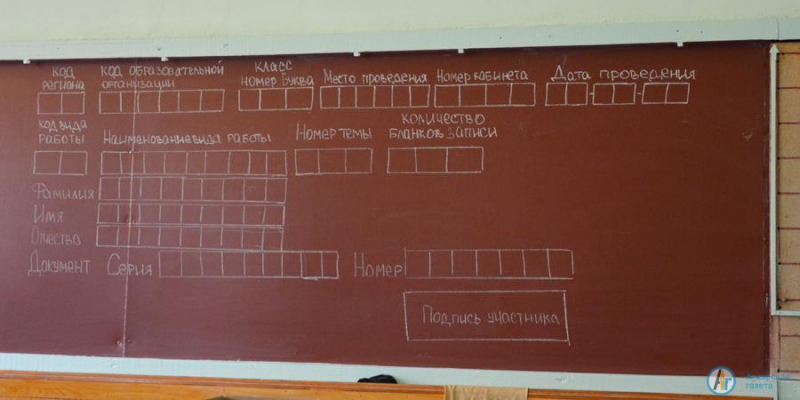 код региона
код образовательной организации
класс
номер буква
Место проведения
Номер кабинета
Дата проведения
- -
код вида работы
Наименование вида работы
Номер темы
количество бланков записи
Фамилия
Имя
Отчество
Документ Серия Номер
Подпись участника
газета